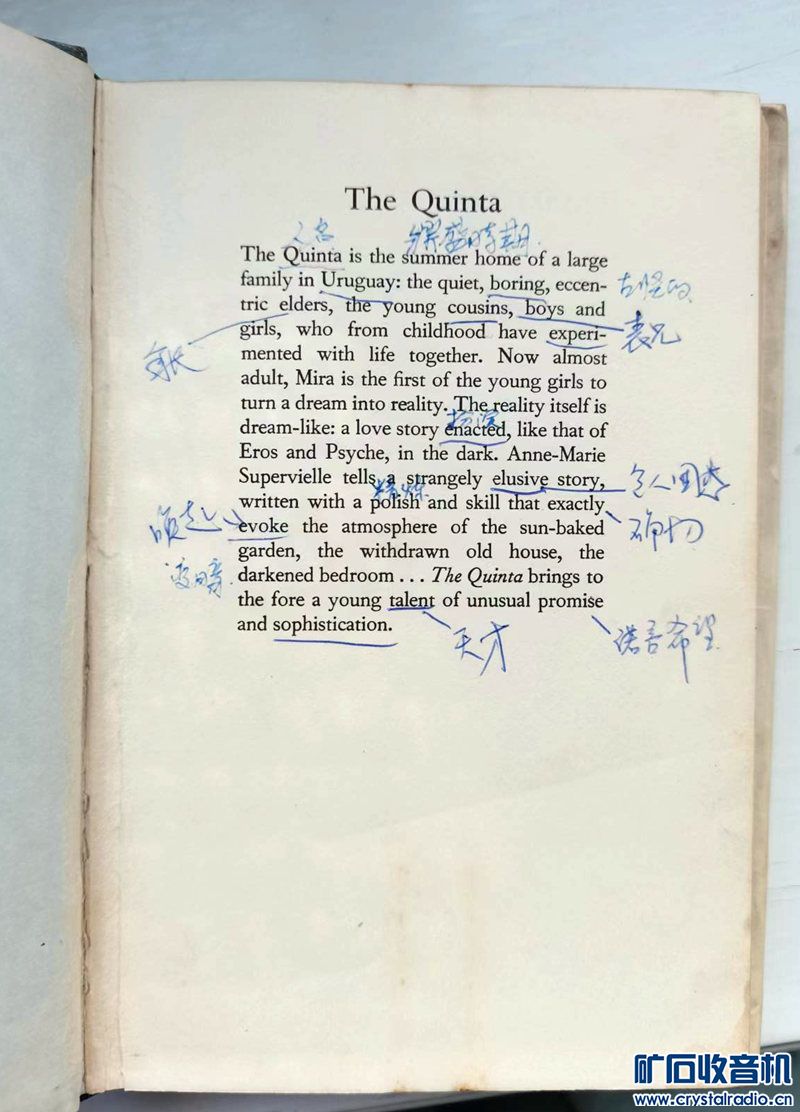 The Quinta
人名 鼎盛時期
The Quinta is the summer home of a large
family in Uruguay: the quiet, boring, eccen-
古怪的
tric elders, the young cousins, boys and
girls, who from childhood have experi-
表兄
mented with life together. Now almost
年长
adult, Mira is the first of the young girls to
turn a dream into reality. The reality itself is
扮演
dream-like: a love story enacted, like that of
Eros and Psyche, in the dark. Anne-Marie
Supervielle tells a strangely elusive story,
令人困惑
精炼
written with a polish and skill that exactly
确切
唤起
evoke the atmosphere of the sun-baked
garden, the withdrawn old house, the
darkened bedroom . . . The Quinta brings to
the fore a young talent of unusual promise
and sophistication.
天才
諾言希望
矿石收音机
www.crystalradio.cn